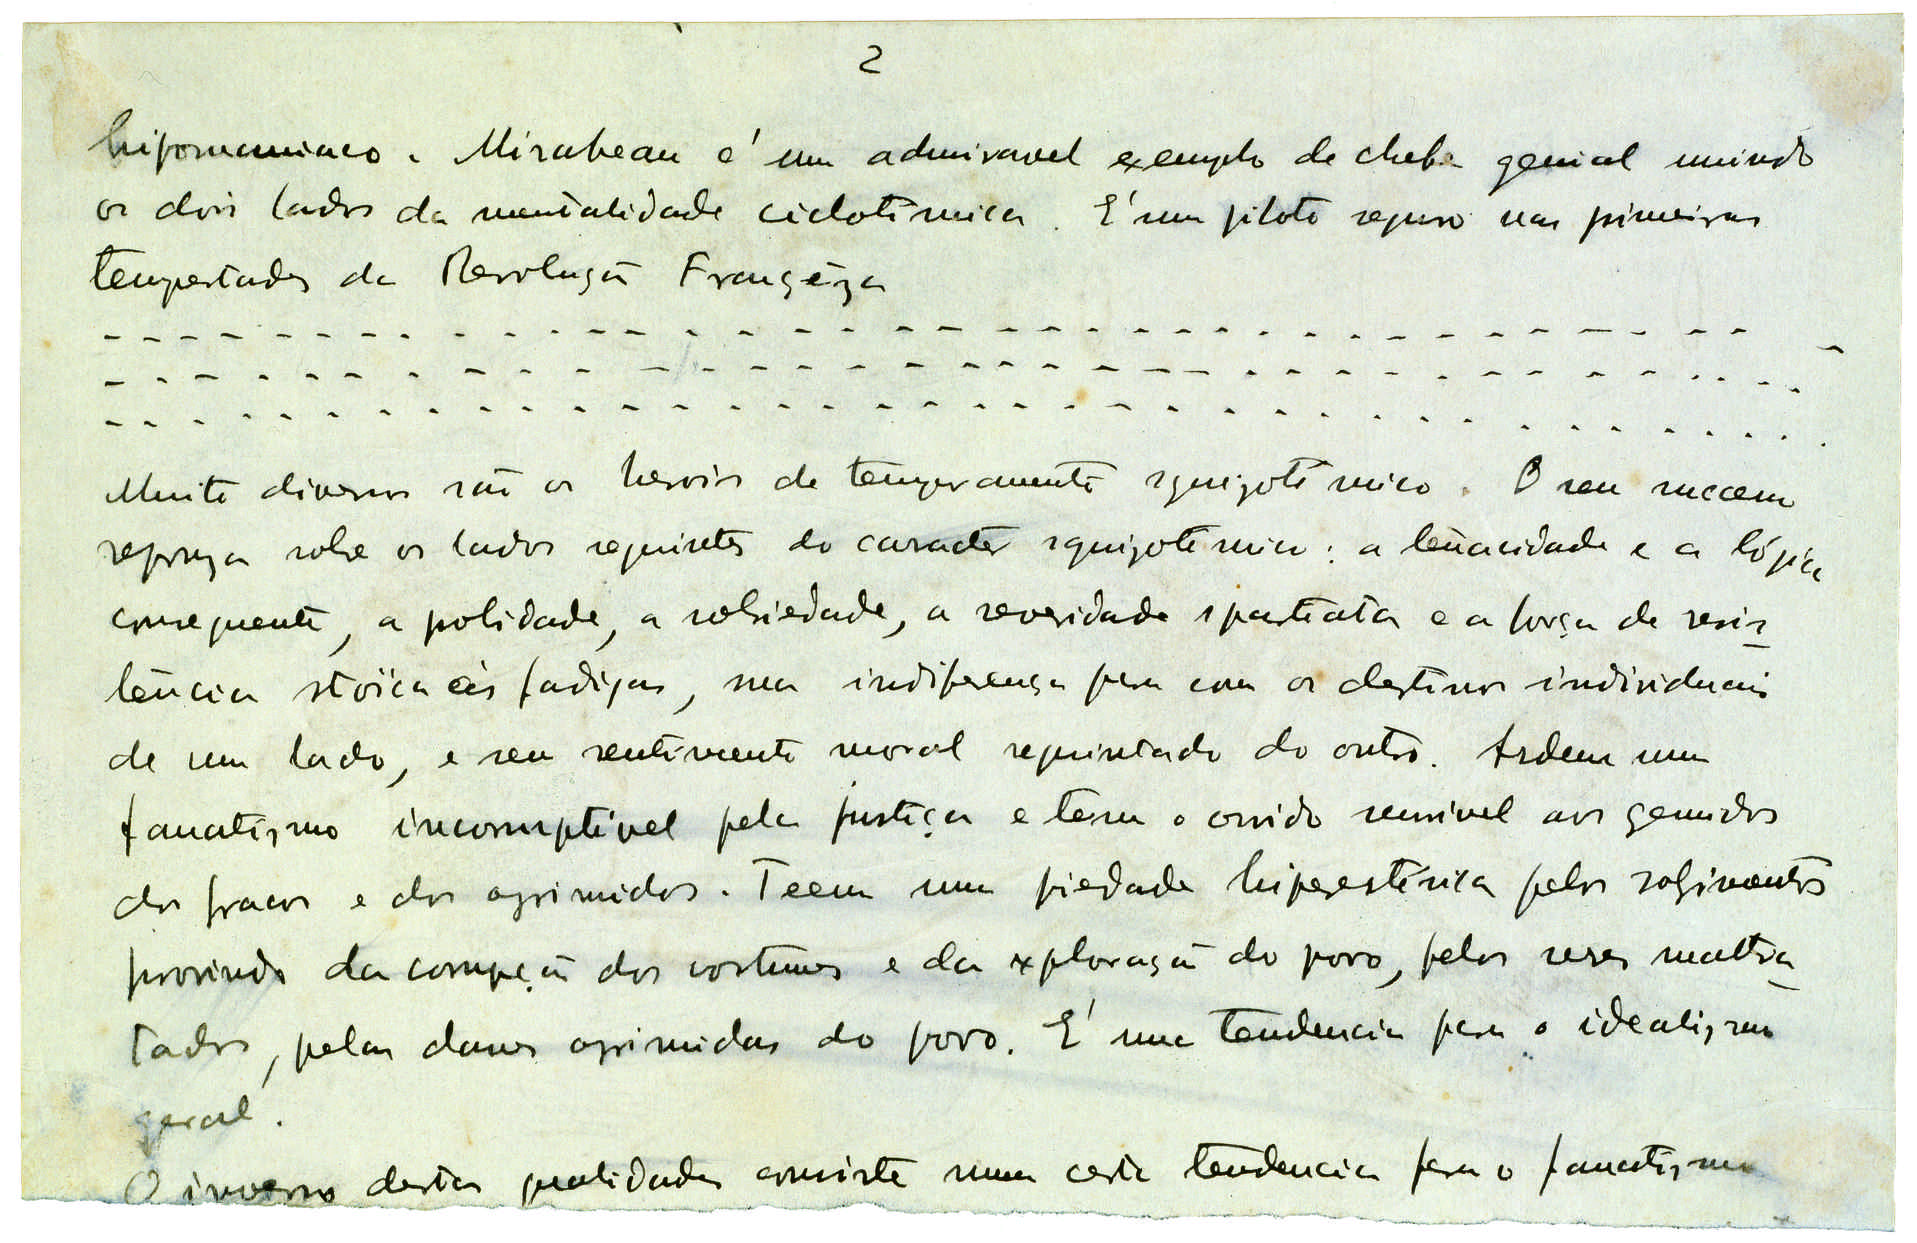 2
hipomaniaco. Mirabeau é um admiravel exemplo de chefe genial unindo
os dois lados da mentalidade ciclotimica. É um piloto seguro nas primeiras
tempestades da Revolução Françêza
Muito diversos são os herois de temperamento squizotimico. O seu sucesso
repouza sobre os lados seguintes do caracter squizotimico: a tenacidade e a lógica
consequente, a polidade, a sobriedade, a severidade spartiata e a força de resis-
tência stoïca às fadigas, sua indiferença para com os destinos individuais
de um lado, e seu sentimento moral requintado do outro. Ardem num
fanatizmo incorruptivel pela justiça e têm o ouvido sensivel aos gemidos
dos fracos e dos oprimidos. Teem uma piedade hiperestésica pelos sofrimentos
provindo da corrupção dos costumes e da exploração do povo, pelos seres maltra-
tados, pelas classes oprimidas do povo. É uma tendencia para o idealizmo
geral.
O inverso destas qualidades consiste numa certa tendencia para o fanatizmo